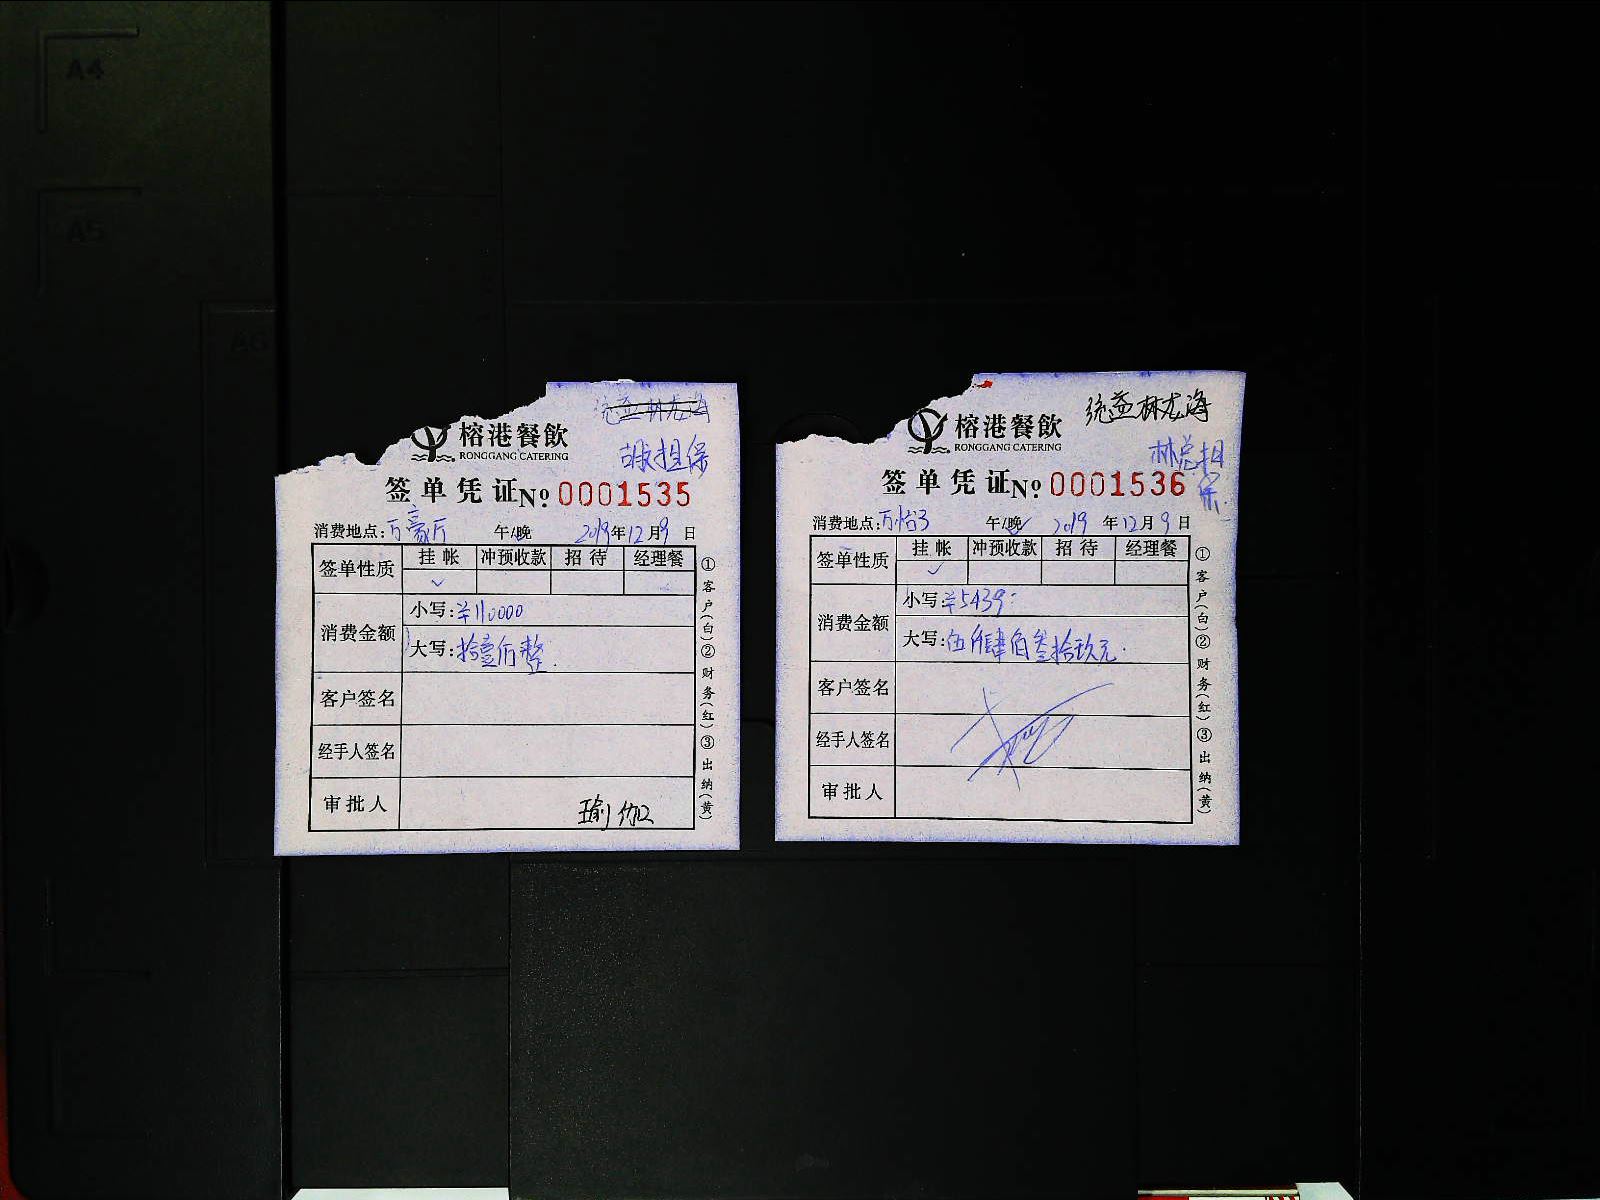 A4
A5
A6
统益林龙海
榕港餐飲
RONGGANG CATERING
胡担保
签单凭证 No 0001535
消费地点:万豪厅 午/晚 2019年12月9日
签单性质 挂帐 冲预收款 招待 经理餐
✓
消费金额 小写:¥110000
大写:拾壹佰整.
客户签名
经手人签名
审批人 瑜伽
①客户(白)②财务(红)③出纳(黄)
统益林龙海
榕港餐飲
RONGGANG CATERING
林总担保.
签单凭证 No 0001536
消费地点:万怡3 午/晚 2019年12月9日
签单性质 挂帐 冲预收款 招待 经理餐
✓
消费金额 小写:¥5439-
大写:伍仟肆佰叁拾玖元.
客户签名
经手人签名
审批人
①客户(白)②财务(红)③出纳(黄)